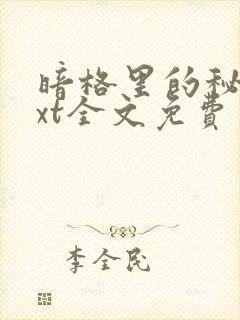 暗格里的秘
xt全文免费
李全民